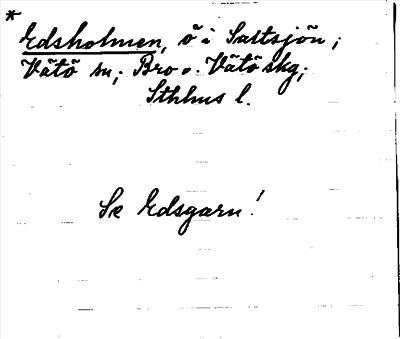 *
Edsholmen, ö i Saltsjön;
Vätö sn; Bro o. Vätö skg;
Sthlms l.
Se Edsgarn!